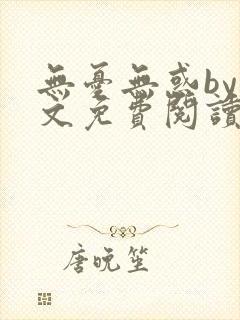 無憂無惑by
文免費閱讀
唐晚笙